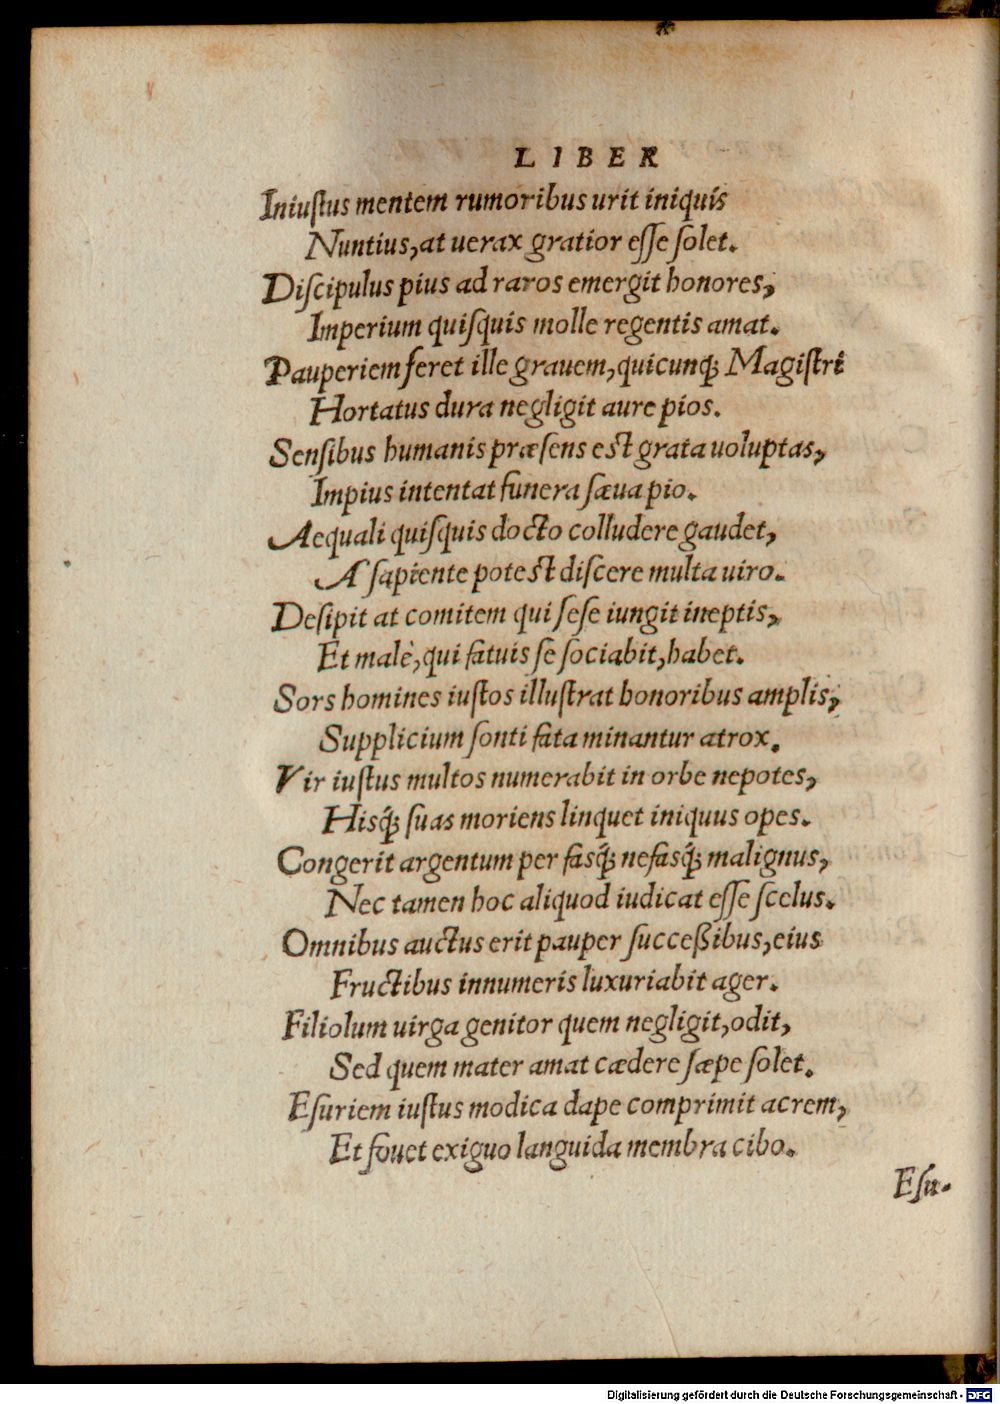 LIBER
Iniuſtus mentem rumoribus urit iniquis
Nuntius, at uerax gratior eſſe ſolet.
Diſcipulus pius ad raros emergit honores,
Imperium quiſquis molle regentis amat.
Pauperiem feret ille grauem, quicunq; Magiſtri
Hortatus dura negligit aure pios.
Senſibus humanis præſens eſt grata uoluptas,
Impius intentat funera ſæua pio.
Aequali quiſquis docto colludere gaudet,
A ſapiente poteſt diſcere multa uiro.
Deſipit at comitem qui ſeſe iungit ineptis,
Et malè, qui fatuis ſe ſociabit, habet.
Sors homines iuſtos illuſtrat honoribus amplis,
Supplicium ſonti fata minantur atrox.
Vir iuſtus multos numerabit in orbe nepotes,
Hisq́; ſuas moriens linquet iniquus opes.
Congerit argentum per fasq́; nefasq́; malignus,
Nec tamen hoc aliquod iudicat eſſe ſcelus.
Omnibus auctus erit pauper ſucceßibus, eius
Fructibus innumeris luxuriabit ager.
Filiolum uirga genitor quem negligit, odit,
Sed quem mater amat cædere ſæpe ſolet.
Eſuriem iuſtus modica dape comprimit acrem,
Et fouet exiguo languida membra cibo.
Eſu.
Digitalisierung gefördert durch die Deutsche Forschungsgemeinschaft - DFG